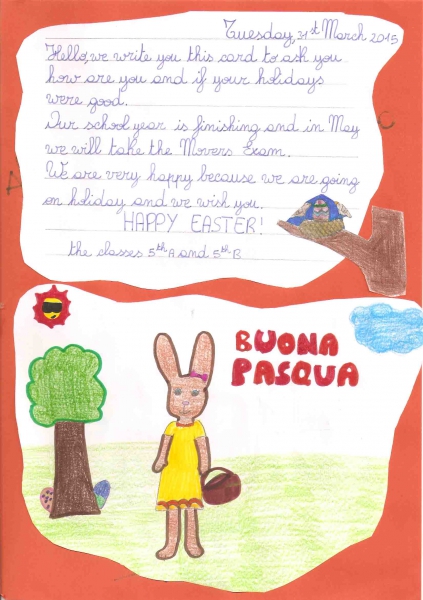 Tuesday, 31st March 2015
Hello, we write you this card to ask you
how are you and if your holidays
were good.
Our school year is finishing and in May
we will take the Movers Exam.
We are very happy because we are going
on holiday and we wish you.
HAPPY EASTER!
the classes 5th A and 5th B
BUONA
PASQUA